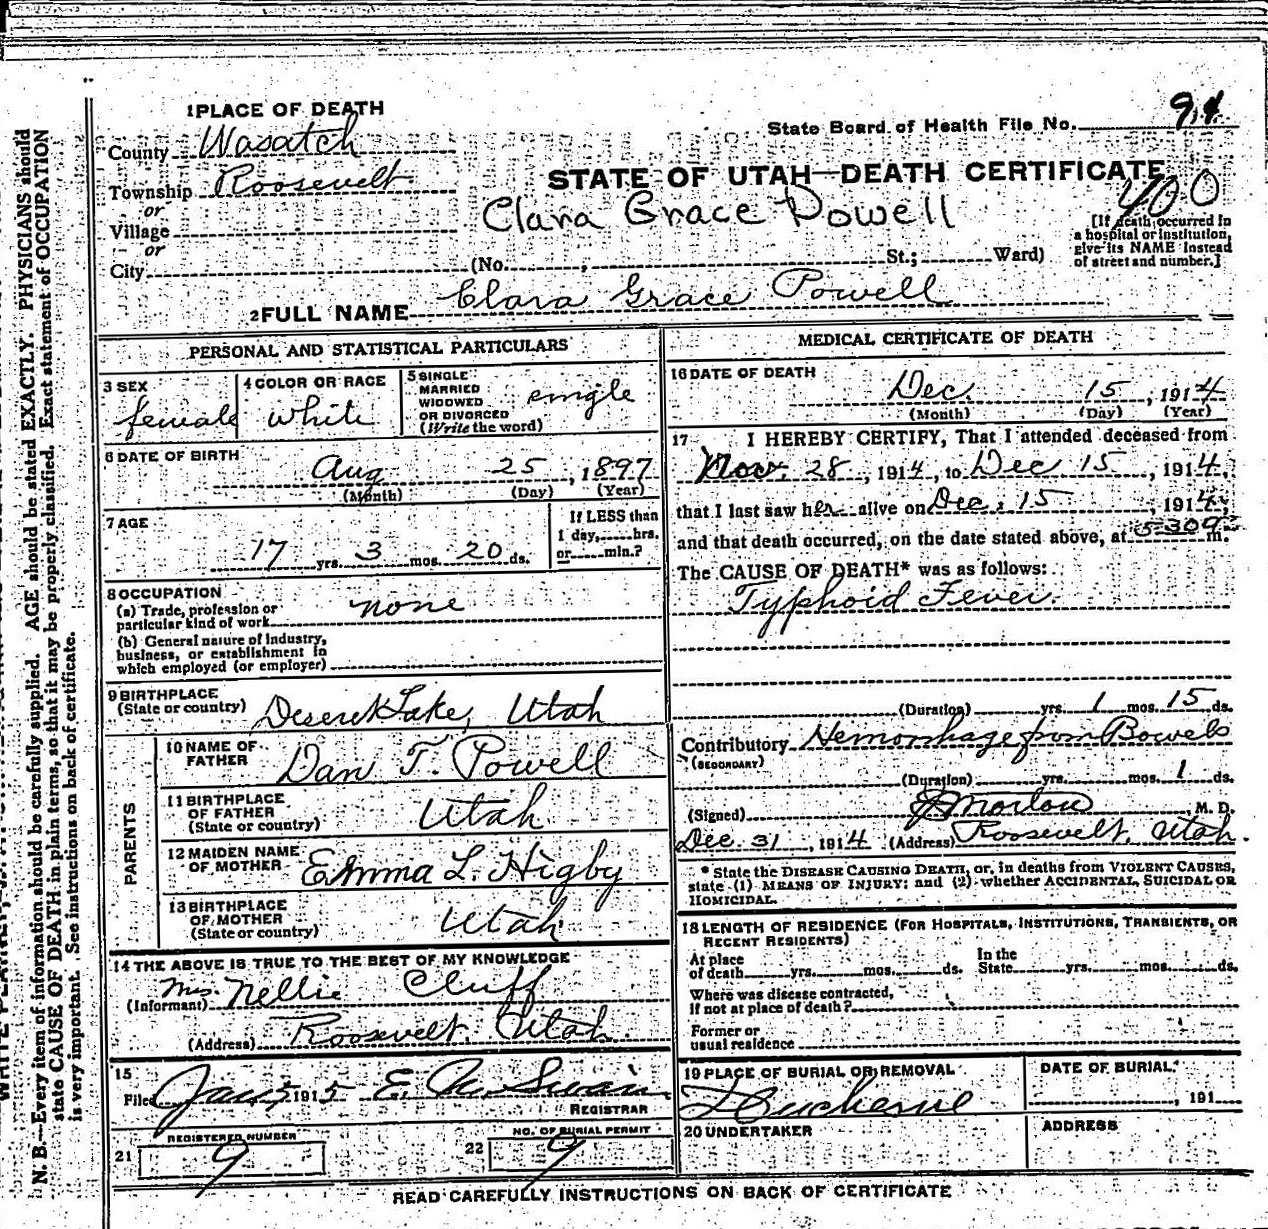 1 PLACE OF DEATH
State Board of Health File No. 94
County Wasatch
STATE OF UTAH—DEATH CERTIFICATE
Township Roosevelt
400
or
Clara Grace Powell
Village
or
City (No. , St.; Ward)
[If death occurred in
a hospital or institution,
give its NAME instead
of street and number.]
2 FULL NAME Clara Grace Powell
PERSONAL AND STATISTICAL PARTICULARS
3 SEX
female
4 COLOR OR RACE
white
5 SINGLE
MARRIED
WIDOWED
OR DIVORCED
(Write the word)
single
6 DATE OF BIRTH
Aug 25, 1897
(Month) (Day) (Year)
7 AGE
17 yrs. 3 mos. 20 ds.
If LESS than
1 day, hrs.
or min.?
8 OCCUPATION
(a) Trade, profession or
particular kind of work none
(b) General nature of industry,
business, or establishment in
which employed (or employer)
9 BIRTHPLACE
(State or country) Deseret Lake, Utah
PARENTS
10 NAME OF
FATHER Dan T. Powell
11 BIRTHPLACE
OF FATHER
(State or country) Utah
12 MAIDEN NAME
OF MOTHER Emma L. Higby
13 BIRTHPLACE
OF MOTHER
(State or country) Utah
14 THE ABOVE IS TRUE TO THE BEST OF MY KNOWLEDGE
(Informant) Mrs. Nellie Cluff
(Address) Roosevelt, Utah
15
Filed Jan 5, 1915 E. Swain
REGISTRAR
21 REGISTERED NUMBER
9
22 NO. OF BURIAL PERMIT
9
MEDICAL CERTIFICATE OF DEATH
16 DATE OF DEATH
Dec. 15, 1914
(Month) (Day) (Year)
17 I HEREBY CERTIFY, That I attended deceased from
Nov. 28, 1914, to Dec 15, 1914,
that I last saw her alive on Dec. 15, 1914,
and that death occurred, on the date stated above, at 5-30 m.
The CAUSE OF DEATH* was as follows:
Typhoid Fever.
(Duration) yrs. 1 mos. 15 ds.
Contributory Hemorrhage from Bowels
(SECONDARY)
(Duration) yrs. mos. 1 ds.
(Signed) Morton, M. D.
Dec. 31, 1914 (Address) Roosevelt, Utah.
* State the DISEASE CAUSING DEATH, or, in deaths from VIOLENT CAUSES,
state (1) MEANS OF INJURY; and (2) whether ACCIDENTAL, SUICIDAL OR
HOMICIDAL.
18 LENGTH OF RESIDENCE (FOR HOSPITALS, INSTITUTIONS, TRANSIENTS, OR
RECENT RESIDENTS)
At place
of death yrs. mos. ds.
In the
State yrs. mos. ds.
Where was disease contracted,
if not at place of death?
Former or
usual residence
19 PLACE OF BURIAL OR REMOVAL
Duchesne
DATE OF BURIAL
, 191
20 UNDERTAKER
ADDRESS
READ CAREFULLY INSTRUCTIONS ON BACK OF CERTIFICATE
N. B.—Every item of information should be carefully supplied. AGE should be stated EXACTLY. PHYSICIANS should
state CAUSE OF DEATH in plain terms, so that it may be properly classified. Exact statement of OCCUPATION
is very important. See instructions on back of certificate.